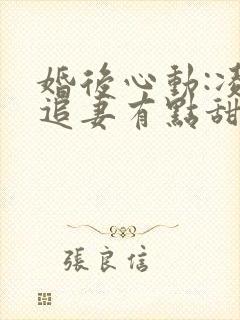 婚後心動:凌
追妻有點甜
張良信